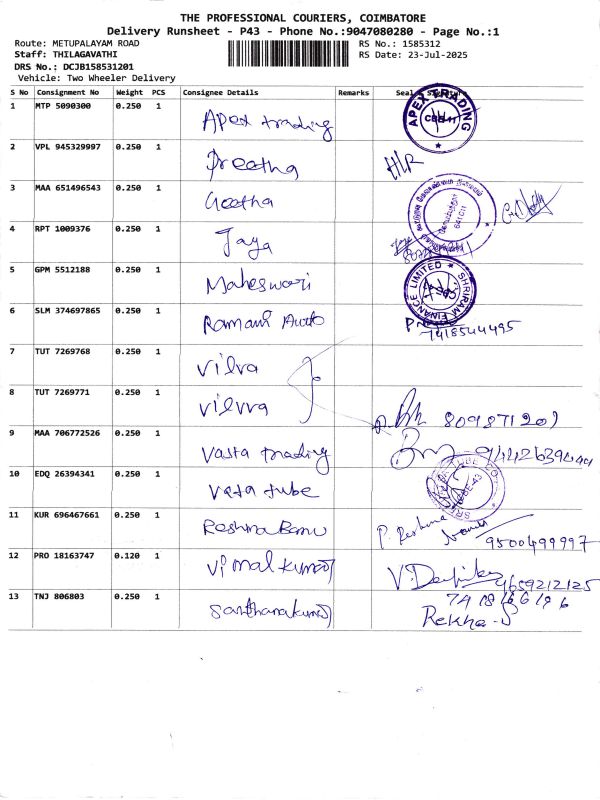 THE PROFESSIONAL COURIERS, COIMBATORE
Delivery Runsheet - P43 - Phone No.:9047080280 - Page No.:1
Route: METUPALAYAM ROAD RS No.: 1585312
Staff: THILAGAVATHI RS Date: 23-Jul-2025
DRS No.: DCJB158531201
Vehicle: Two Wheeler Delivery
S No Consignment No Weight PCS Consignee Details Remarks Seal
1 MTP 5090300 0.250 1 Apex trading APEX TRADING
2 VPL 945329997 0.250 1 Preetha HLR
3 MAA 651496543 0.250 1 Geetha 641011
4 RPT 1009376 0.250 1 Jaya
5 GPM 5512188 0.250 1 Maheswari SHRIRAM FINANCE LIMITED
6 SLM 374697865 0.250 1 Ramani Auto 7418544495
7 TUT 7269768 0.250 1 Vilva
8 TUT 7269771 0.250 1 Vilvra 809871201
9 MAA 706772526 0.250 1 Vasta trading
10 EDQ 26394341 0.250 1 Vata tube
11 KUR 696467661 0.250 1 Reshma Banu P. Reshma Banu 9500499997
12 PRO 18163747 0.120 1 Vimal kumar 9659212125
13 TNJ 806803 0.250 1 Santhanakumar Rekha-S